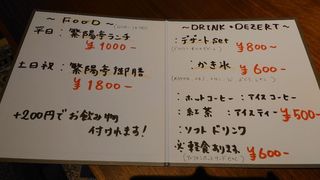 ～ FOOD ～
平日：繁陽亭ランチ
¥1000～
土日祝：繁陽亭御膳
¥1800～
+200円でお飲み物
付けれます！
～DRINK・DEZERT～
：デザート set
¥800～
：かき氷
¥600～
：ホットコーヒー：アイスコーヒー
：紅茶：アイスティー ¥500～
：ソフトドリンク
※軽食あります
¥600～